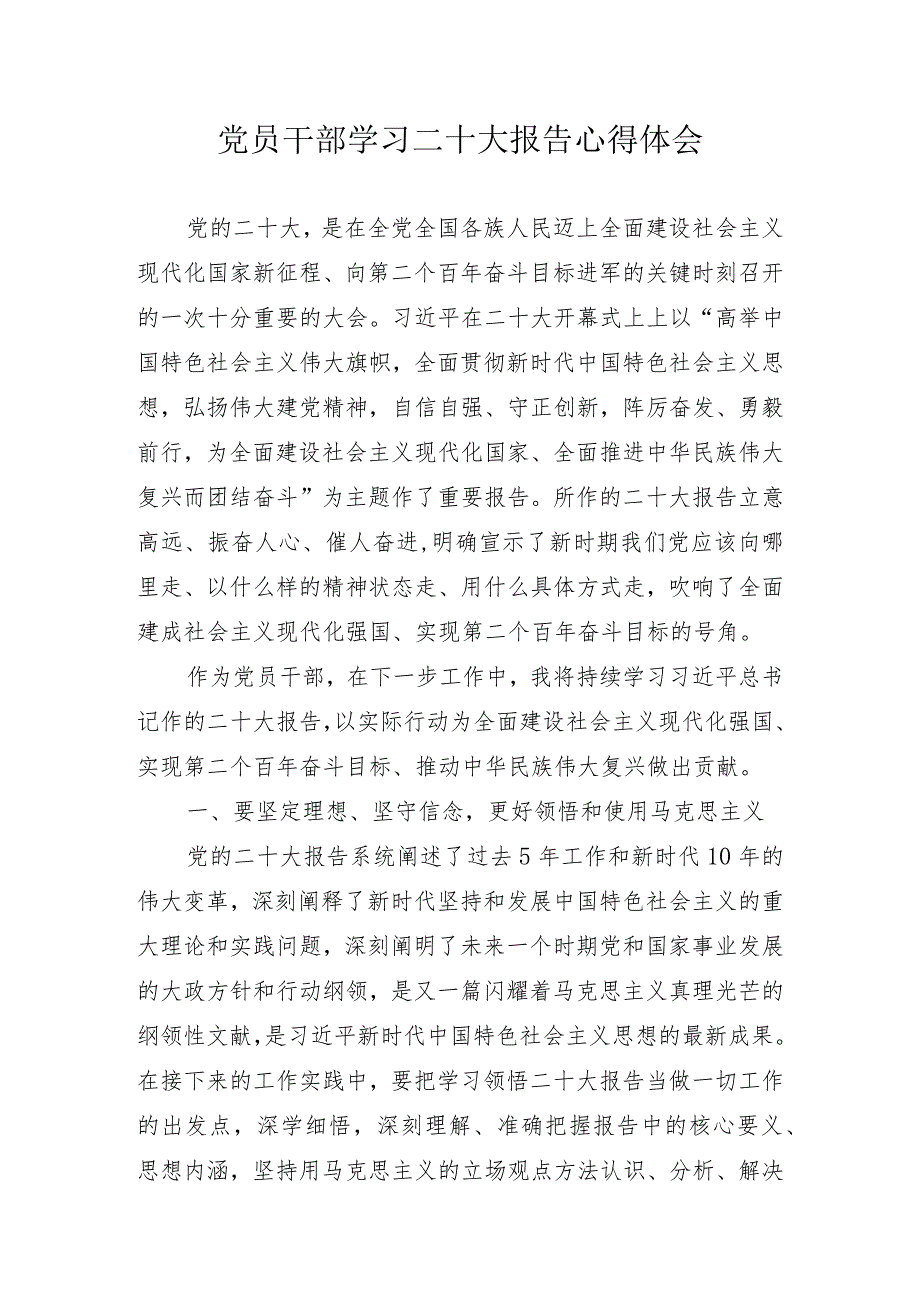 党员干部学习二十大报告心得体会
党的二十大，是在全党全国各族人民迈上全面建设社会主义
现代化国家新征程、向第二个百年奋斗目标进军的关键时刻召开
的一次十分重要的大会。习近平在二十大开幕式上上以“高举中
国特色社会主义伟大旗帜，全面贯彻新时代中国特色社会主义思
想，弘扬伟大建党精神，自信自强、守正创新，踔厉奋发、勇毅
前行，为全面建设社会主义现代化国家、全面推进中华民族伟大
复兴而团结奋斗”为主题作了重要报告。所作的二十大报告立意
高远、振奋人心、催人奋进,明确宣示了新时期我们党应该向哪
里走、以什么样的精神状态走、用什么具体方式走，吹响了全面
建成社会主义现代化强国、实现第二个百年奋斗目标的号角。
作为党员干部，在下一步工作中，我将持续学习习近平总书
记作的二十大报告,以实际行动为全面建设社会主义现代化强国、
实现第二个百年奋斗目标、推动中华民族伟大复兴做出贡献。
一、要坚定理想、坚守信念，更好领悟和使用马克思主义
党的二十大报告系统阐述了过去5年工作和新时代10年的
伟大变革，深刻阐释了新时代坚持和发展中国特色社会主义的重
大理论和实践问题，深刻阐明了未来一个时期党和国家事业发展
的大政方针和行动纲领，是又一篇闪耀着马克思主义真理光芒的
纲领性文献,是习近平新时代中国特色社会主义思想的最新成果。
在接下来的工作实践中，要把学习领悟二十大报告当做一切工作
的出发点，深学细悟，深刻理解、准确把握报告中的核心要义、
思想内涵，坚持用马克思主义的立场观点方法认识、分析、解决